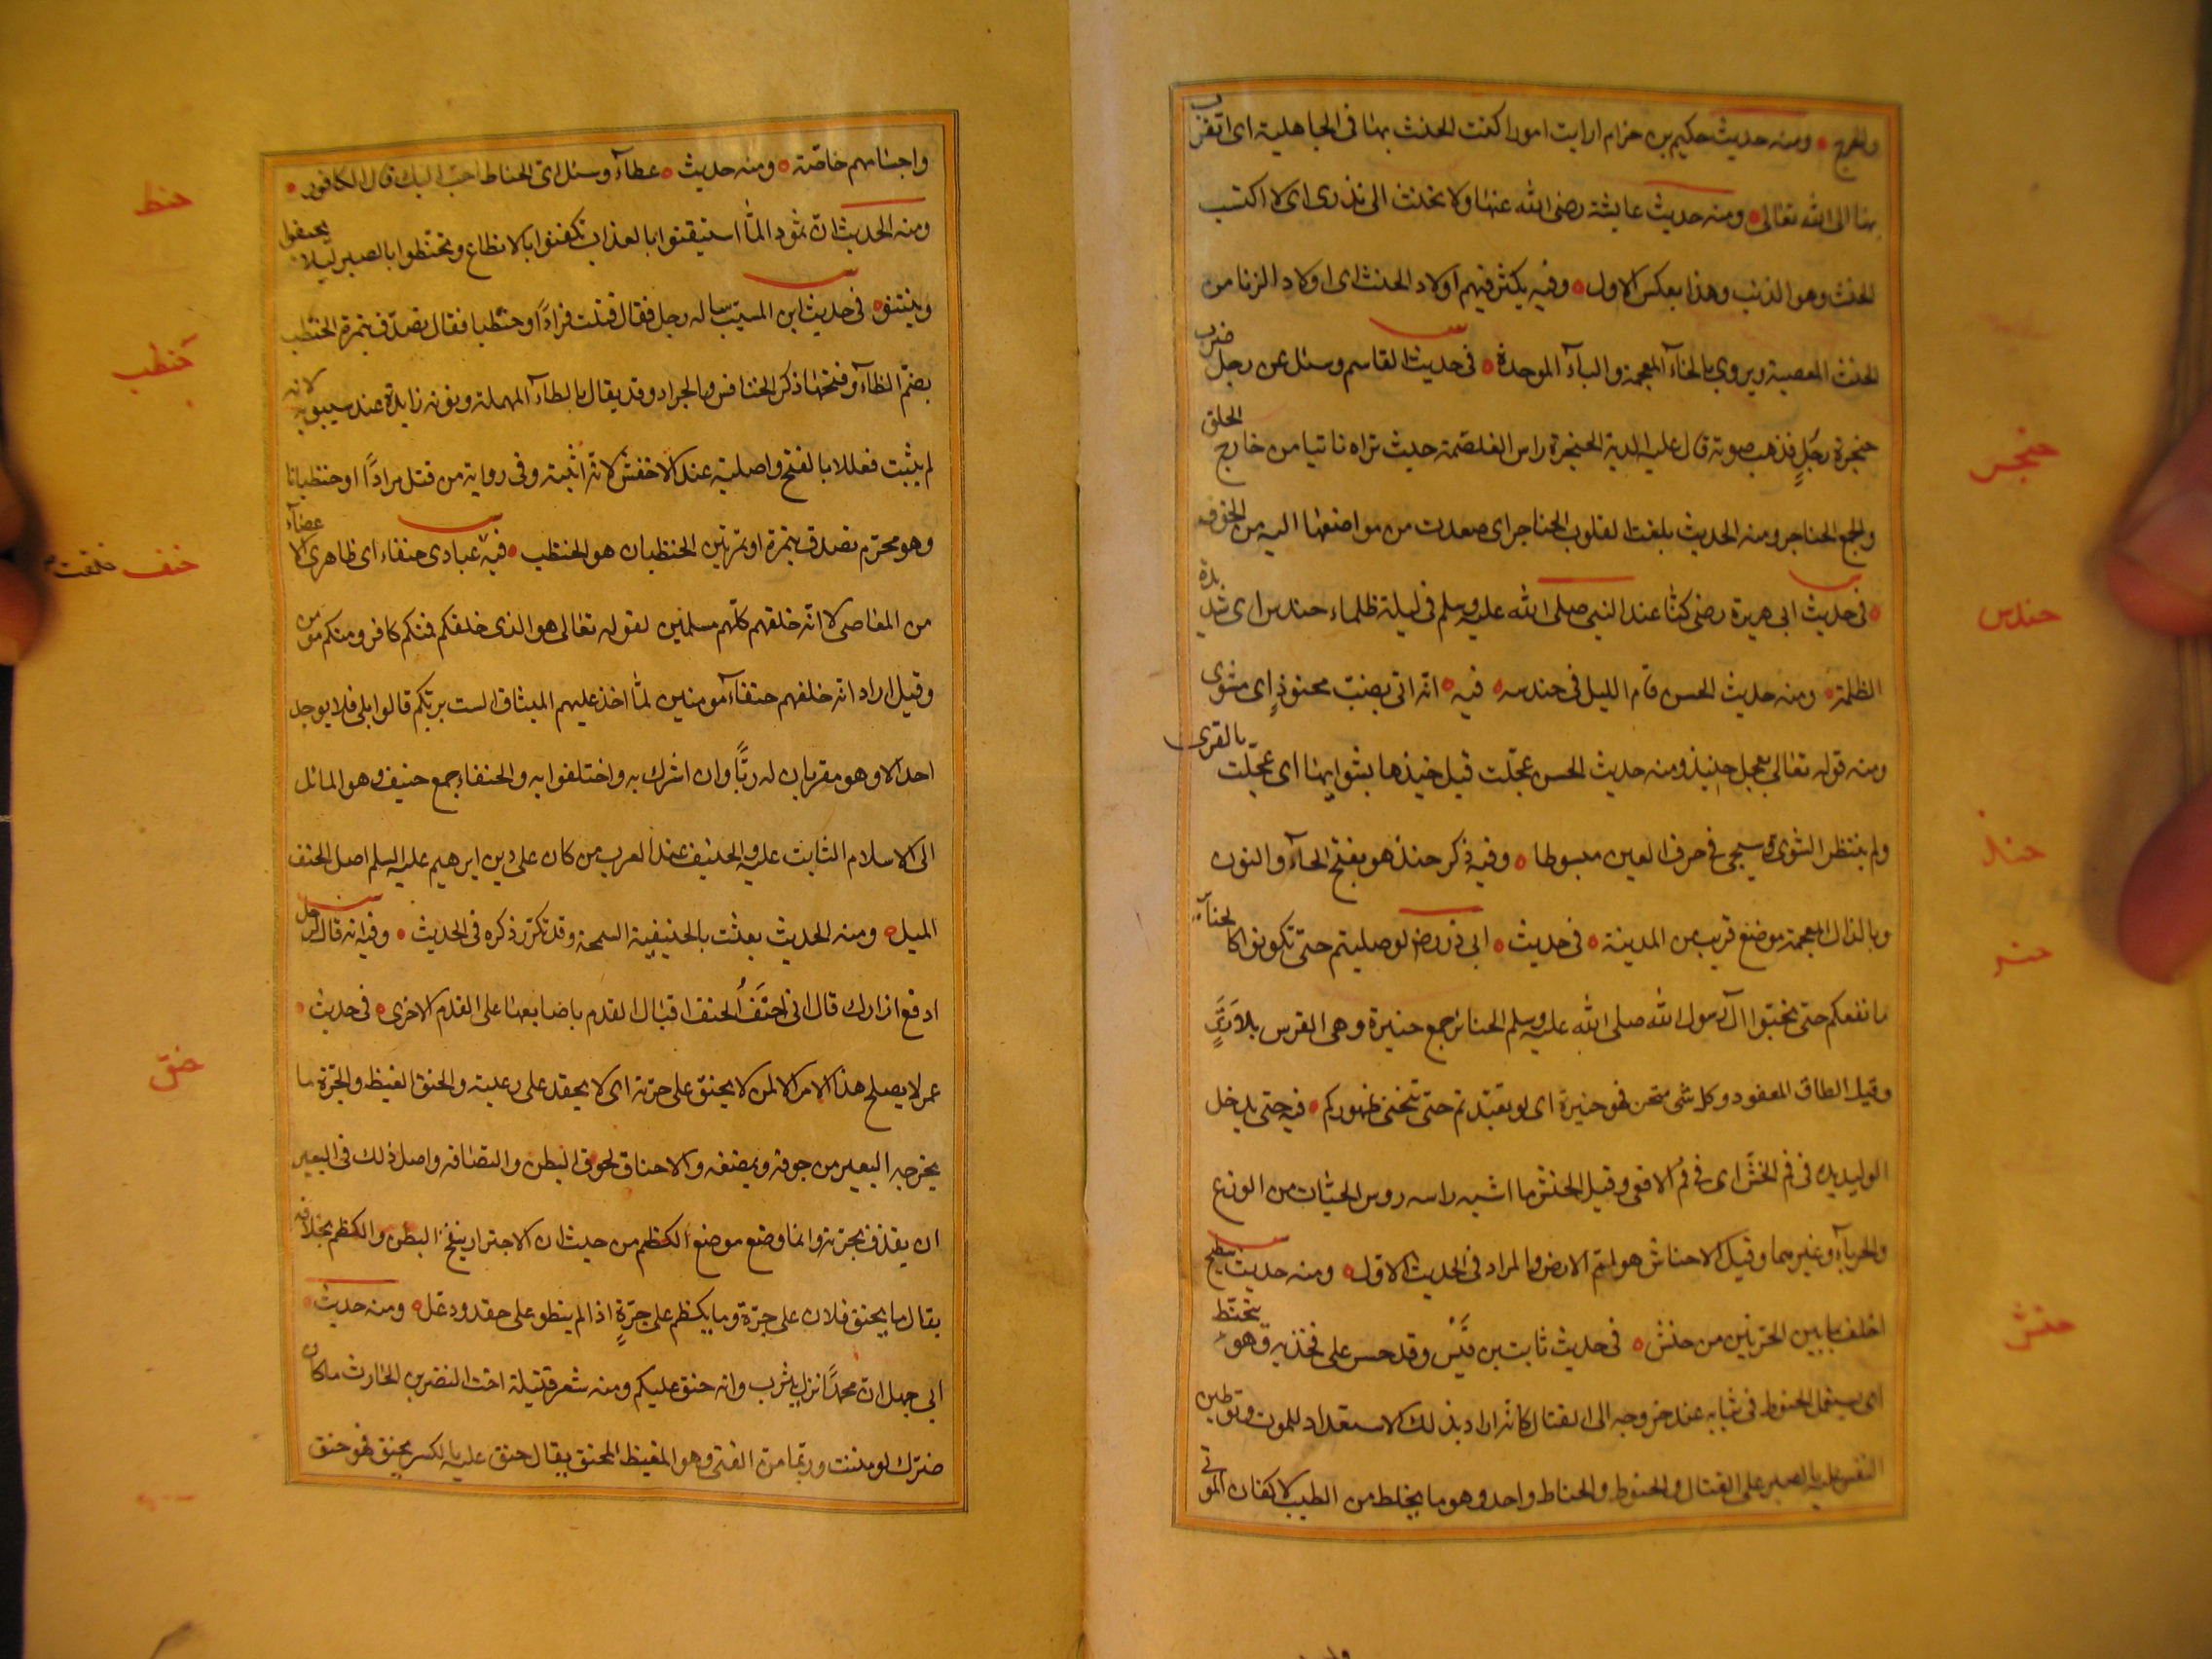 والحرج ومنه حديث حكيم بن حزام ارايت امورا كنت اتحنث بها في الجاهلية اى اتقرب
بها الى الله تعالى ومنه حديث عايشة رضى الله عنها ولا تحنث الى نذرى اى لا اكتسب
الحنث وهو الذنب وهذا بعكس الاول وفيه يكثر فيهم اولاد الحنث اى اولاد الزنا من
الحنث المعصية ويروى بالخاء المعجمة والباء الموحدة في حديث القاسم وسئل عن رجل ضرب
حنجر
حنجرة رجلٍ فذهب صوته قال عليه الدية الحنجرة راس الغلصمة حيث تراه ناتيا من خارج الحلق
والجمع الحناجر ومنه الحديث بلغت القلوب الحناجر اى صعدت من مواضعها اليه من الخوف
حندس
في حديث ابى هريرة رضى كنا عند النبى صلى الله عليه وسلم في ليلة ظلماء حندس اى شديدة
الظلمة ومنه حديث الحسن قام الليل في حندسه فيه انه اتى بضب محنوذٍ اى مشوى
ومنه قوله تعالى بعجل حنيذ ومنه حديث الحسن عجلت قبل حنيذها بشوايها اى عجلت بالقرى
حنذ
ولم ينتظر الشوى وسيجى في حرف العين مبسوطا وفيه ذكر حنذ هو بفتح الحاء والنون
حنر
وبالذال المعجمة موضع قريب من المدينة في حديث ابى ذر رض لو صليتم حتى تكونوا كالحناير
ما نفعكم حتى تحبوا آل رسول الله صلى الله عليه وسلم الحناير جمع حنيرة وهى القوس بلا وترٍ
وقيل الطاق المعقود وكل شى منحن فهو حنيرة اى لو تعبدتم حتى تنحنى ظهوركم فيه حتى يدخل
الوليد يده في فم الحنش اى في فم الافعى وقيل الحنش ما اشبه راسه روس الحيات من الوزغ
والحرباء وغيرهما وقيل الاحناش هوام الارض والمراد في الحديث الاول ومنه حديث سطيح
حنش
احلف بما بين الحرتين من حنش في حديث ثابت بن قيس وقد حسر على فخذيه وهو يتحنط
اى يستعمل الحنوط في ثيابه عند خروجه الى القتال كانه اراد بذلك الاستعداد للموت وتوطين
النفس عليه بالصبر على القتال والحنوط والحناط واحد وهو ما يخلط من الطيب لاكفان الموتى
حنط
واجسامهم خاصة ومنه حديث عطاء وسئل اى الحناط احب اليك قال الكافور
ومنه الحديث ان ثمود لما استيقنوا بالعذاب تكفنوا بالانطاع وتحنطوا بالصبر ليلا يجيفوا
وينتنوا في حديث ابن المسيب ساله رجل فقال قتلت قرادًا وحنظبا فقال تصدق بتمرة الحنظب
حنظب
بضم الظاء وفتحها ذكر الخنافس والجراد وقد يقال بالطاء المهملة ونونه زايدة عند سيبويه لانه
لم يثبت فعللا بالفتح واصلية عند الاخفش لانه اثبته وفي رواية من قتل قرادًا او حنظبانا
وهو محرم تصدق بتمرة او تمرتين الحنظبان هو الحنظب فيه عبادى حنفاء اى ظاهرى الاعضاء
حنف خلقت
من المعاصى لا انه خلقهم كلهم مسلمين لقوله تعالى هو الذى خلقكم فمنكم كافر ومنكم مومن
وقيل اراد انه خلقهم حنفاء مومنين لما اخذ عليهم الميثاق الست بربكم قالوا بلى فلا يوجد
احد الا وهو مقر بان له ربًّا وان اشرك به واختلفوا به والحنفاء جمع حنيف وهو المائل
الى الاسلام الثابت عليه والحنيف عند العرب من كان على دين ابرهيم عليه السلم اصل الحنف
الميل ومنه الحديث بعثت بالحنيفية السمحة وقد تكرر ذكره في الحديث وفيه انه قال لرجل
ارفع ازارك قال انى احنَفُ الحنف اقبال القدم باصابعها على القدم الاخرى في حديث
حنق
عمر لا يصلح هذا الامر الا لمن لا يحنق على جرته اى لا يحقد على رعيته والحنق الغيظ والجرة ما
يخرجه البعير من جوفه ويمضغه والاحناق لحوق البطن والتصاقه واصل ذلك في البعير
ان يقذف بجرته وانما وضع موضع الكظم من حيث ان الاجترار ينفخ البطن والكظم بخلافه
يقال ما يحنق فلان على جرة وما يكظم على جرةٍ اذا لم ينطو على حقد ودغل ومنه حديث
ابي جهل ان محمدًا نزل يثرب وانه حنق عليكم ومنه شعر قتيلة اخت النضر بن الحارث ما كان
ضرك لو مننت وربما منّ الفتى وهو المغيظ المحنق يقال حنق عليه بالكسر يحنق فهو حنق